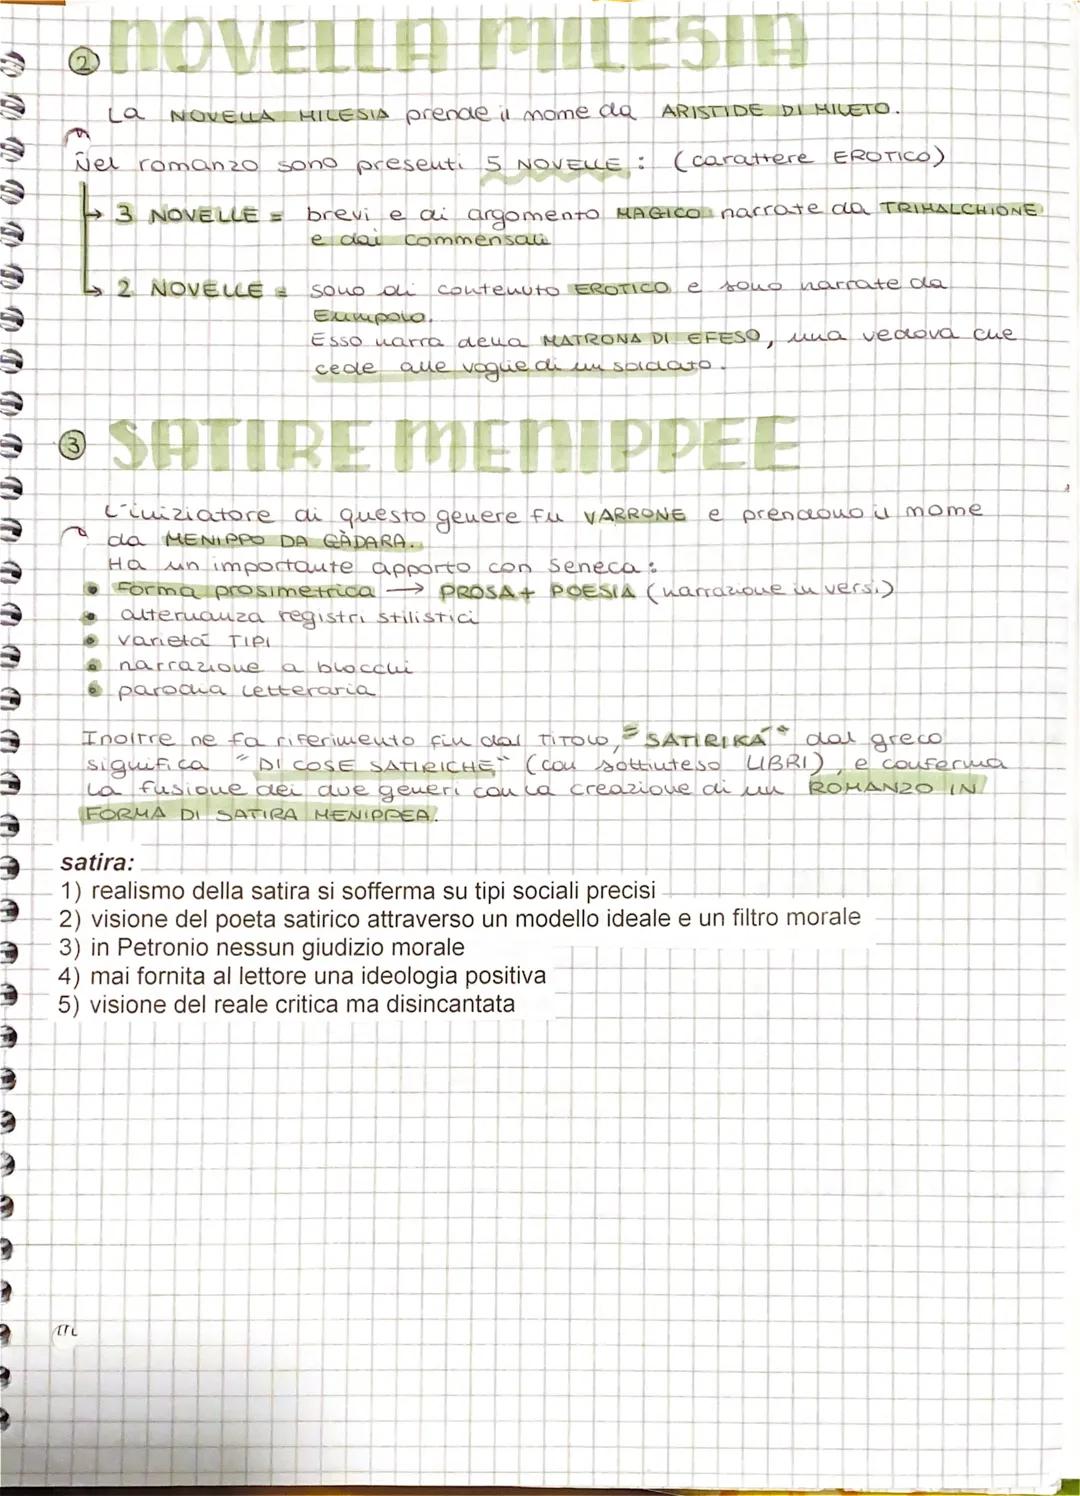 ② NOVELLA MILESIA
La NOVELLA MILESIA prende il nome da ARISTIDE DI MILETO.
Nel romanzo sono presenti 5 NOVELLE : (carattere EROTICO)
→ 3 NOVELLE = brevi e di argomento MAGICO narrate da TRIMALCHIONE
e dai commensali
→ 2 NOVELLE = sono di contenuto EROTICO e sono narrate da
Eumpolo.
Esso narra della MATRONA DI EFESO, una vedova che
cede alle voglie di un soldato.
③ SATIRE MENIPPEE
L'iniziatore di questo genere fu VARRONE e prendono il nome
da MENIPPO DA GÀDARA.
Ha un importante apporto con Seneca :
• Forma prosimetrica → PROSA + POESIA (narrazione in versi)
• alternanza registri stilistici
• varietà TIPI
• narrazione a blocchi
• parodia letteraria
Inoltre ne fa riferimento fin dal TITOLO, "SATIRIKA" dal greco
significa "DI COSE SATIRICHE" (con sottinteso LIBRI), e conferma
la fusione dei due generi con la creazione di un ROMANZO IN
FORMA DI SATIRA MENIPPEA.
satira:
1) realismo della satira si sofferma su tipi sociali precisi
2) visione del poeta satirico attraverso un modello ideale e un filtro morale
3) in Petronio nessun giudizio morale
4) mai fornita al lettore una ideologia positiva
5) visione del reale critica ma disincantata